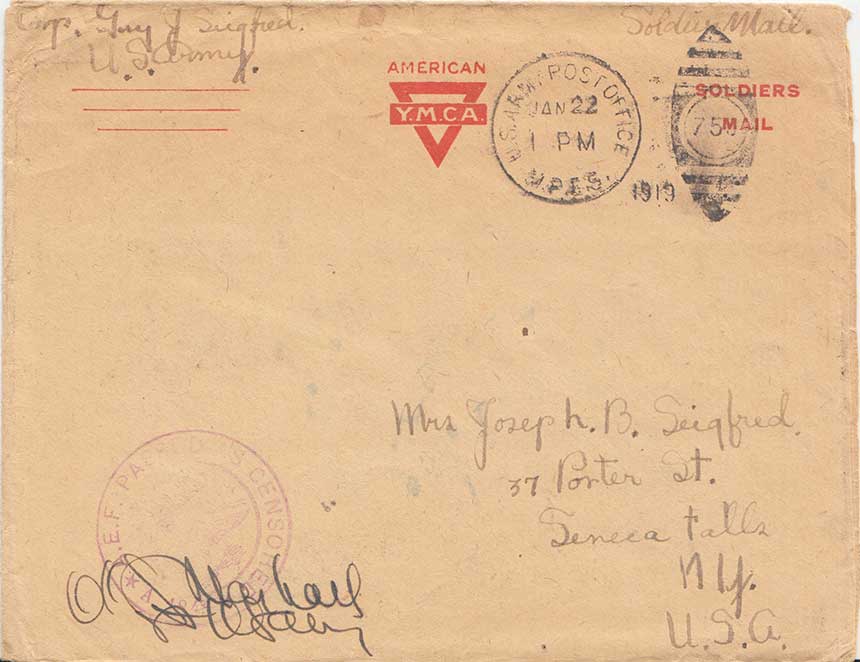 Corp. Guy J Siegfred.
U.S. Army.
Soldiers Mail.
AMERICAN
Y.M.C.A.
SOLDIERS
MAIL
U.S. ARMY POST OFFICE
JAN 22
1 PM
M.P.E.S.
1919
Mrs Joseph. B. Seigfred.
37 Porter St.
Seneca Falls
N.Y.
U.S.A.
A.E.F. PASSED AS CENSORED
OK